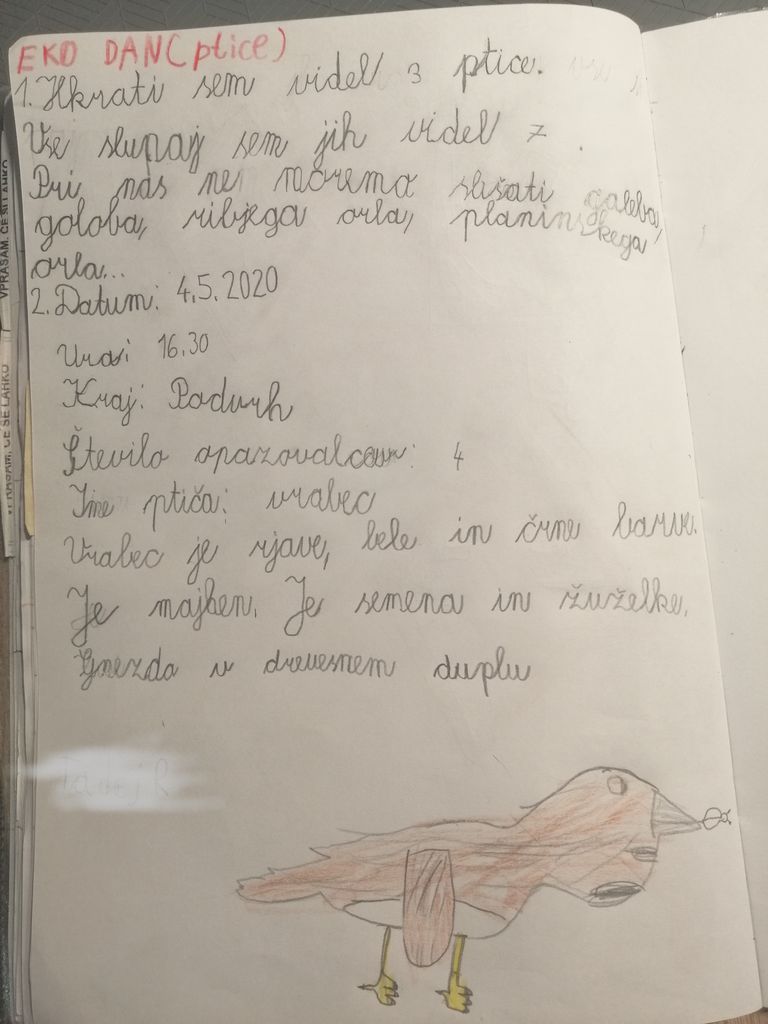 EKO DAN (ptice)
1. Hkrati sem videl 3 ptice.
Vse skupaj sem jih videl 7.
Pri nas ne moremo slišati galeba,
goloba, ribjega orla, planinskega
orla...
2. Datum: 4.5.2020
Ura: 16.30
Kraj: Podvrh
Število opazovalcev: 4
Ime ptiča: vrabec
Vrabec je rjave, bele in črne barve.
Je majhen. Je semena in žuželke.
Gnezdo v drevesnem duplu
VPRAŠAM, ČE SE LAHKO
VPRAŠAM, ČE SE LAHKO